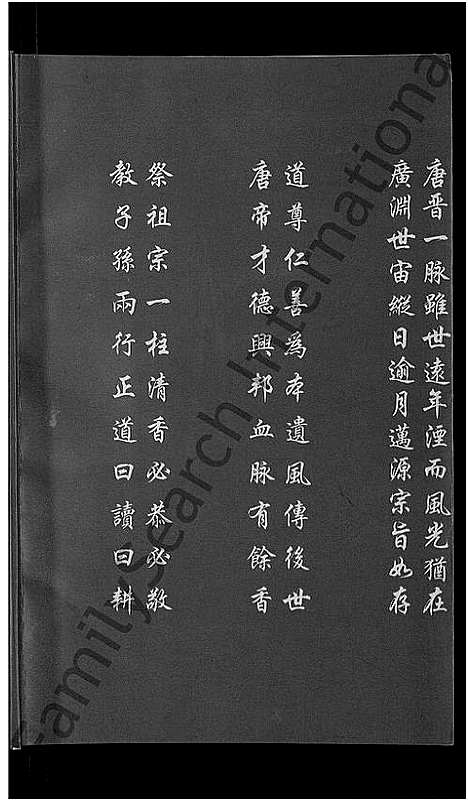 唐晋一脉雖世遠年湮而風光猶在
廣淵世宙縱日逾月邁源宗旨如存
道尊仁善爲本遺風傳後世
唐帝才德興邦血脉有餘香
祭祖宗一柱清香必恭必敬
教子孫兩行正道曰讀曰耕
FamilySearch International